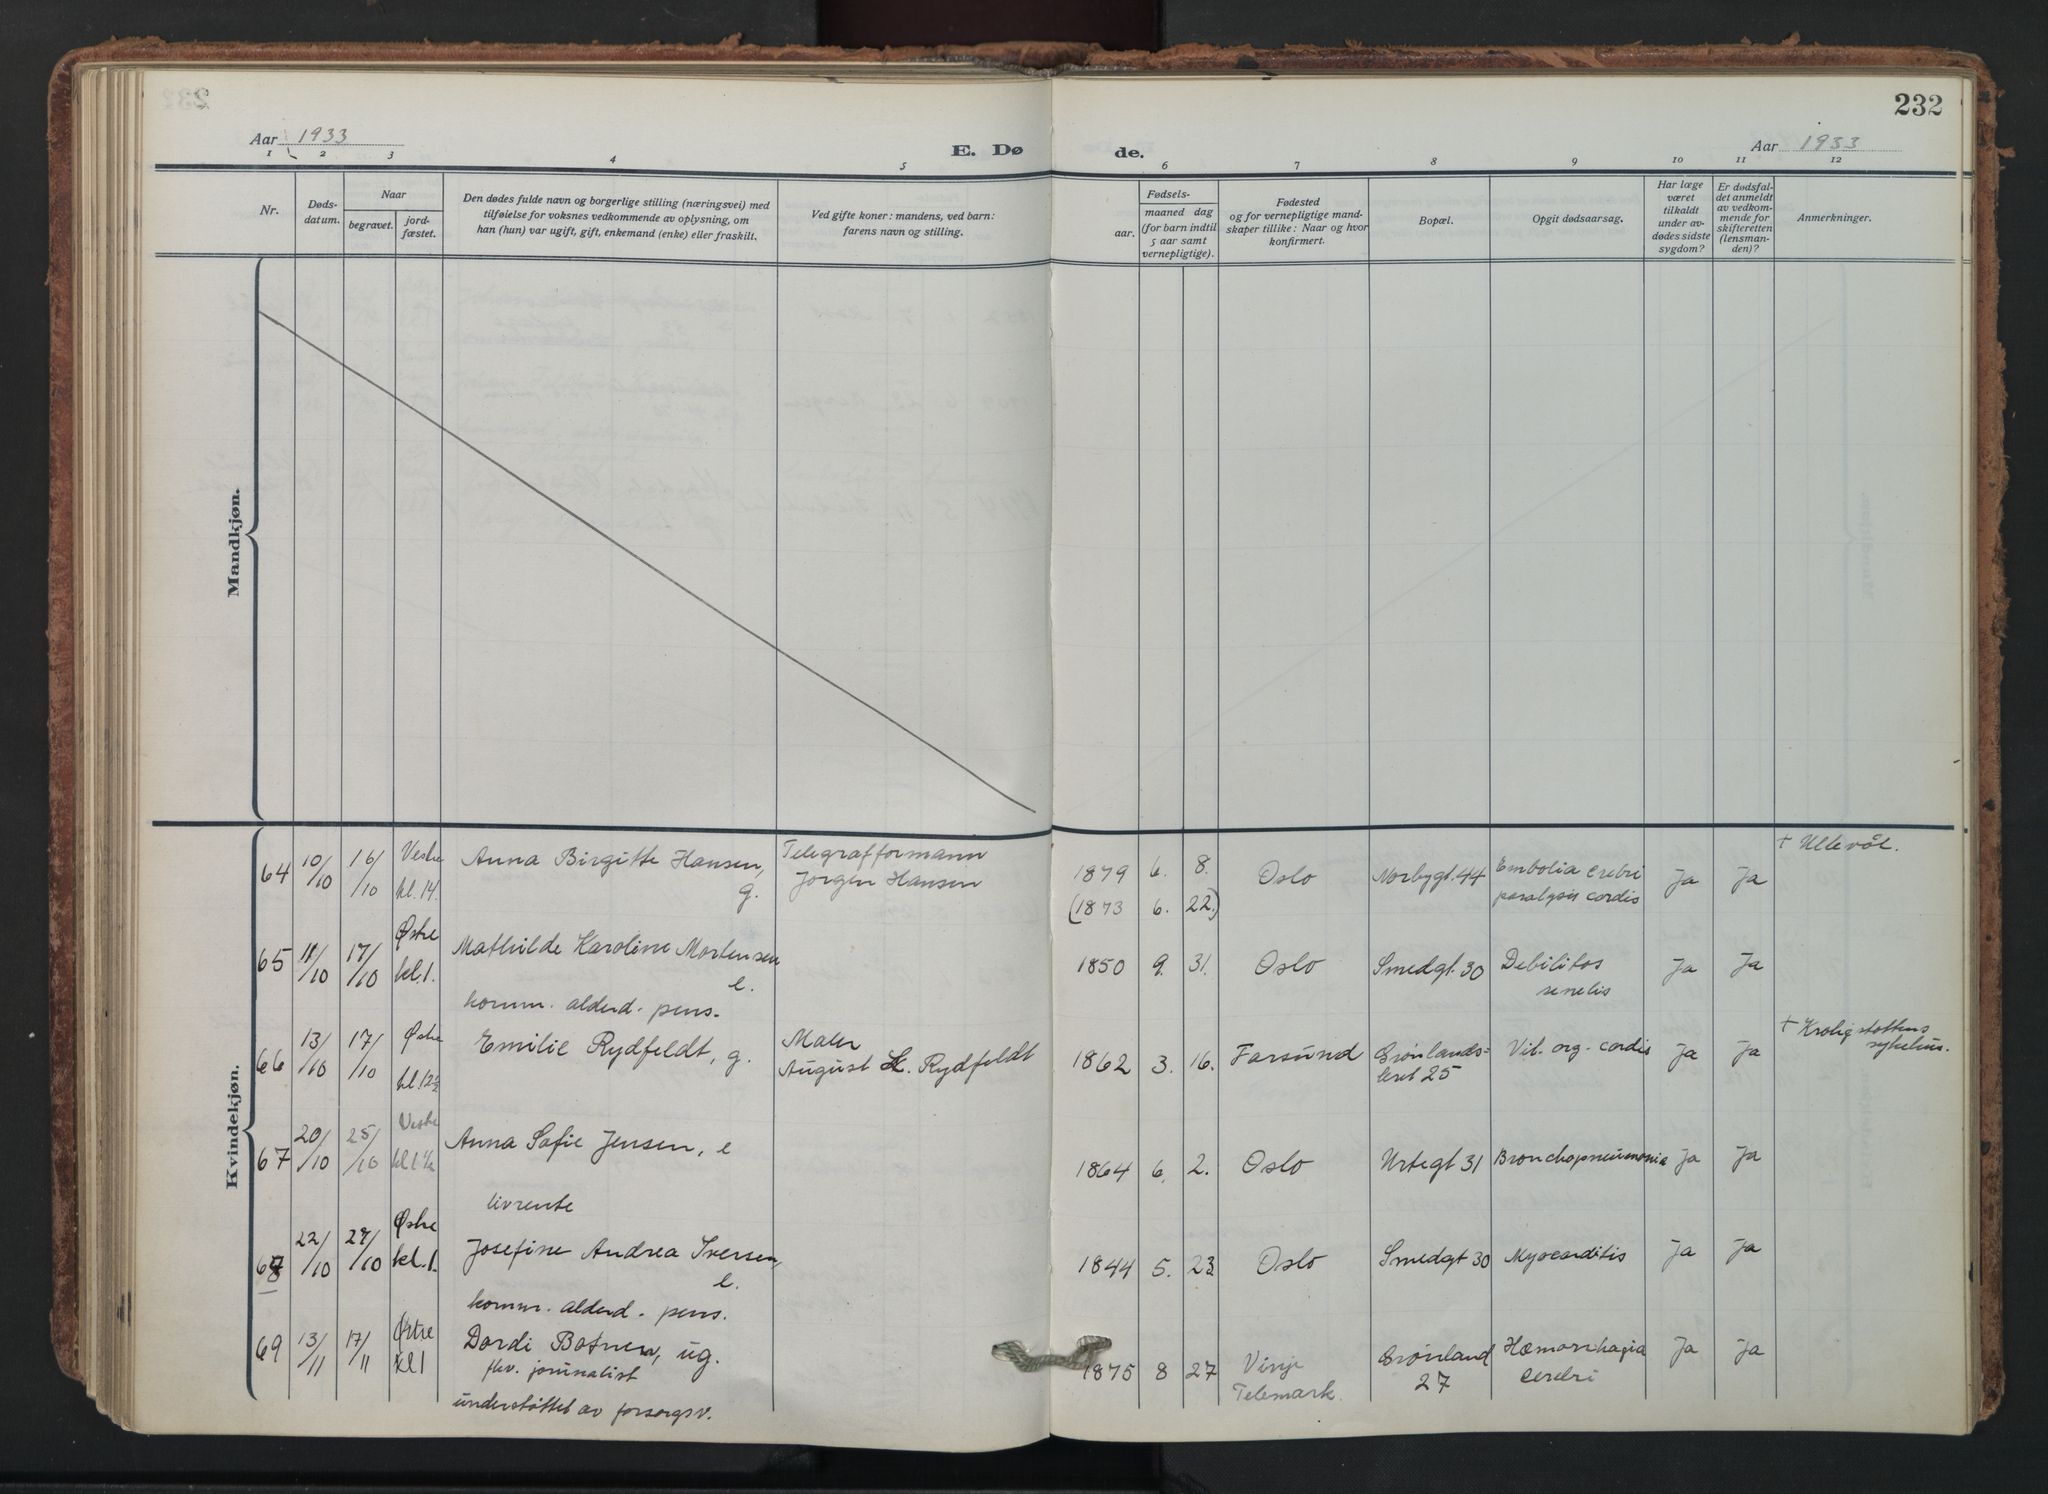 232
Aar 1933
E. Dø
de.
Aar 1933
1 2 3 4 5 6 7 8 9 10 11 12
Nr.
Døds-
datum.
Naar
begravet.
jord-
fæstet.
Den dødes fulde navn og borgerlige stilling (næringsvei) med
tilføielse for voksnes vedkommende av oplysning, om
han (hun) var ugift, gift, enkemand (enke) eller fraskilt.
Ved gifte koner: mandens, ved barn:
farens navn og stilling.
Fødsels-
aar.
maaned dag
(for barn indtil
5 aar samt
vernepligtige).
Fødested
og for vernepligtige mand-
skaper tillike: Naar og hvor
konfirmert.
Bopæl.
Opgit dødsaarsag.
Har læge
været
tilkaldt
under av-
dødes sidste
sygdom?
Er dødsfal-
det anmeldt
av vedkom-
mende for
skifteretten
(lensman-
den)?
Anmerkninger.
Mandkjøn.
Kvindekjøn.
64 10/10 16/10 Vestre kl. 14. Anna Birgitte Hansen, g. Telegrafformann Jørgen Hansen 1879 6. 8. Oslo Norbygt. 44 Embolia crebri paralysis cordis Ja Ja + Ullevål.
(1873 6. 22.)
65 11/10 17/10 Østre kl. 1. Mathilde Karoline Mortensen e. 1850 9. 31. Oslo Smedgt. 30 Debilitas senelis Ja Ja
komm. alderd. pens.
66 13/10 17/10 Østre kl. 12½ Emilie Rydfeldt, g. Maler August H. Rydfeldt 1862 3. 16. Farsund Grønlands= leret 25 Vit. org. cordis Ja Ja + Krohgstøttens sykehus.
67 20/10 25/10 Vestre kl 1½ Anna Sofie Jensen, e 1864 6. 2. Oslo Urtegt 31 Bronchopneumonia Ja Ja
livrente
68 22/10 27/10 Østre kl. 1. Josefine Andrea Iversen, e. 1844 5. 23. Oslo Smedgt 30 Myocarditis Ja Ja
komm. alderd. pens.
69 13/11 17/11 Østre kl 1 Dordi Botnen, ug. 1875 8 27 Vinje Telemark. Grønland 27 Hæmorrhagia cerebri Ja Ja
fhv. journalist
understøttet av forsorgsv.